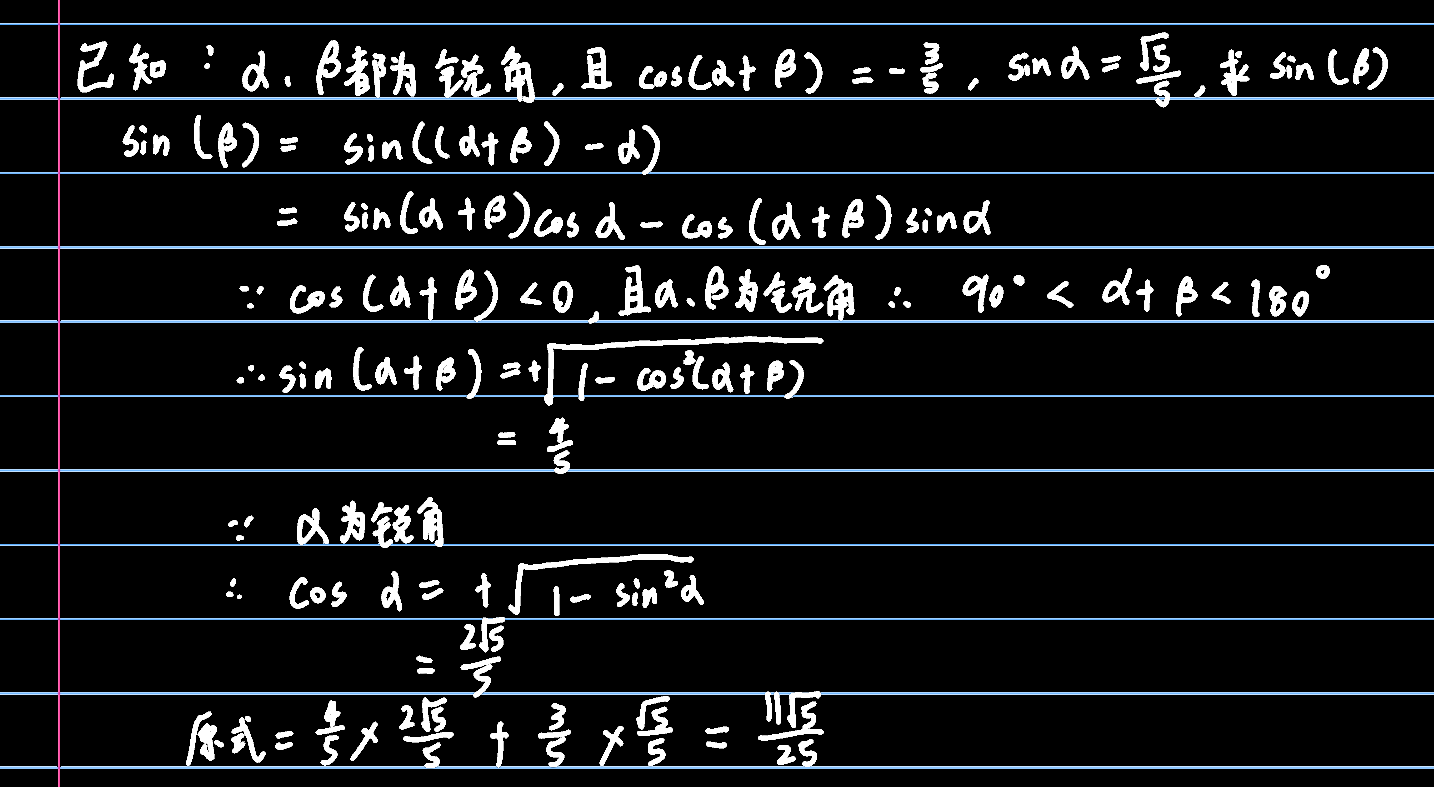 已知：α、β都为锐角,且 cos(α+β) = -3/5, sinα = √5/5, 求 sin(β)
sin(β) = sin((α+β)-α)
= sin(α+β)cosα - cos(α+β)sinα
∵ cos(α+β)<0, 且α、β为锐角 ∴ 90°<α+β<180°
∴ sin(α+β) = +√(1-cos²(α+β))
= 4/5
∵ α为锐角
∴ cos α = +√(1-sin²α)
= 2√5/5
原式 = 4/5 × 2√5/5 + 3/5 × √5/5 = 11√5/25